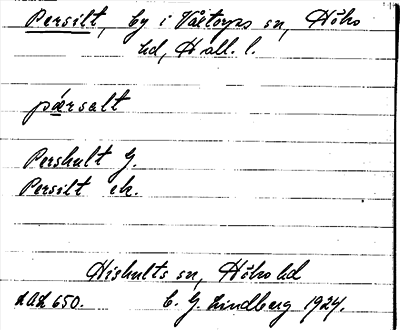 Persilt, by i Våxtorps sn, Höks
hd, Hall. l.
pärsalt
Pershult G.
Persilt ek.
Hishults sn, Höks hd
LAL 650. C. G. Lindberg 1924.